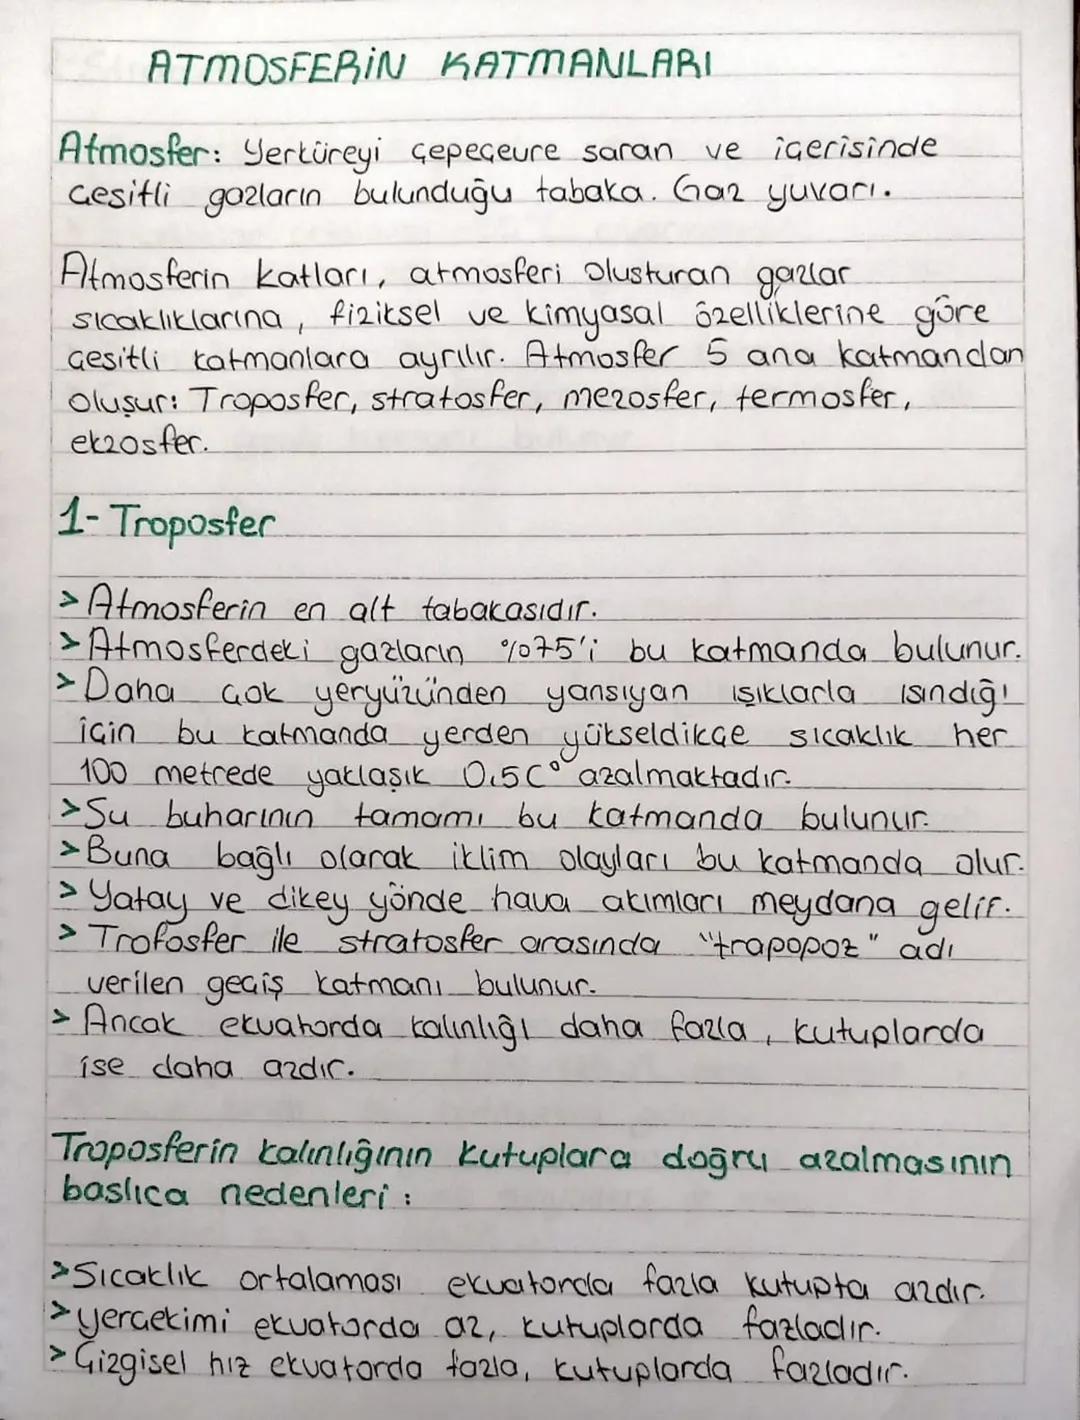 ATMOSFERİN KATMANLARI
Atmosfer: Yerküreyi çepeçeure saran ve içerisinde
çesitli gazların bulunduğu tabaka. Gaz yuvarı.
Atmosferin katları, atmosferi olusturan gazlar
sıcaklıklarına, fiziksel ve kimyasal özelliklerine göre
çesitli katmanlara ayrılır. Atmosfer 5 ana katmandan
oluşur: Troposfer, stratosfer, mezosfer, termosfer,
ekzosfer.
1- Troposfer
> Atmosferin en alt tabakasıdır.
> Atmosferdeki gazların %75'i bu katmanda bulunur.
> Daha çok yeryüzünden yansıyan ışıklarla ısındığı
için bu katmanda yerden yükseldikçe sıcaklık her
100 metrede yaklaşık 0.5C° azalmaktadır.
> Su buharının tamamı bu katmanda bulunur.
> Buna bağlı olarak iklim olayları bu katmanda olur.
> Yatay ve dikey yönde hava akımları meydana gelir.
> Trofosfer ile stratosfer arasında "trapopoz" adı
verilen geçiş katmanı bulunur.
> Ancak ekvatorda kalınlığı daha fazla, kutuplarda
ise daha azdır.
Troposferin kalınlığının kutuplara doğru azalmasının
baslıca nedenleri:
> Sıcaklık ortalaması ekvatorda fazla kutupta azdır.
> yerçekimi ekvatorda az, kutuplarda fazladır.
> Çizgisel hız ekvatorda fazla, kutuplarda fazladır.